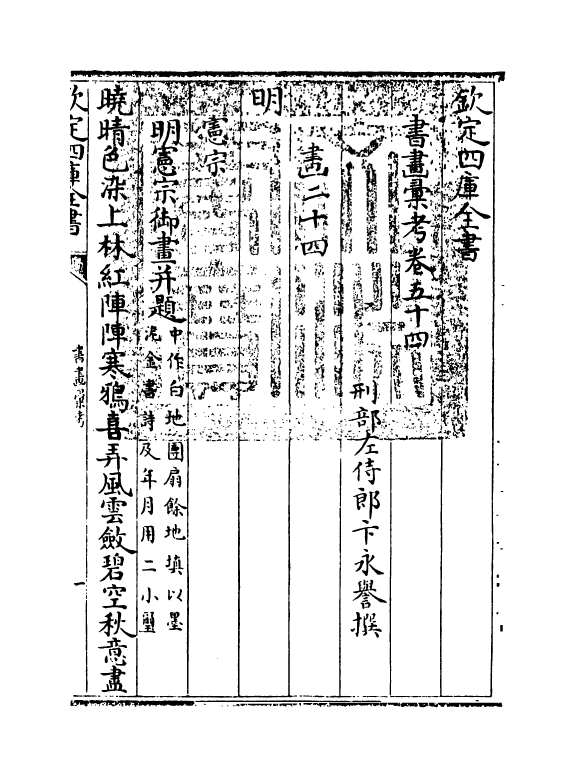 欽定四庫全書
書畫彙考卷五十四
刑部左侍郎卞永譽撰
畫二十四
明
憲宗
明憲宗御畫并題
中作白地團扇餘地填以墨
泥金書詩及年月用二小璽
曉晴色染上林紅陣陣寒鴉喜弄風雲斂碧空秋意盡
欽定四庫全書
書畫彙考
一